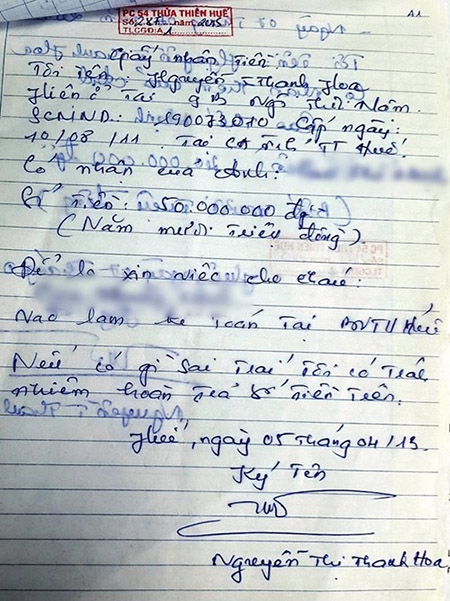 A1
PC 54 THỪA THIÊN HUẾ
Số: 281 2015
TLCGĐ: A1
Giấy nhận tiền
Tôi tên Nguyễn T Thanh Hoa
Hiện ở tại 9B Ngô Thế
SCMND: Cấp ngày:
10/08/11. Tại CA Tỉnh TT Huế.
Có nhận của Anh:
Số tiền: 50.000.000 đg
(Năm mươi Triệu đồng).
Để lo xin việc cho cháu:
Vào làm kế toán Tại BVTW Huế
Nếu có gì sai trái Tôi có trách
nhiệm hoàn trả số tiền trên.
Huế, ngày 05 tháng 04/13.
Ký tên
Nguyễn Thị Thanh Hoa